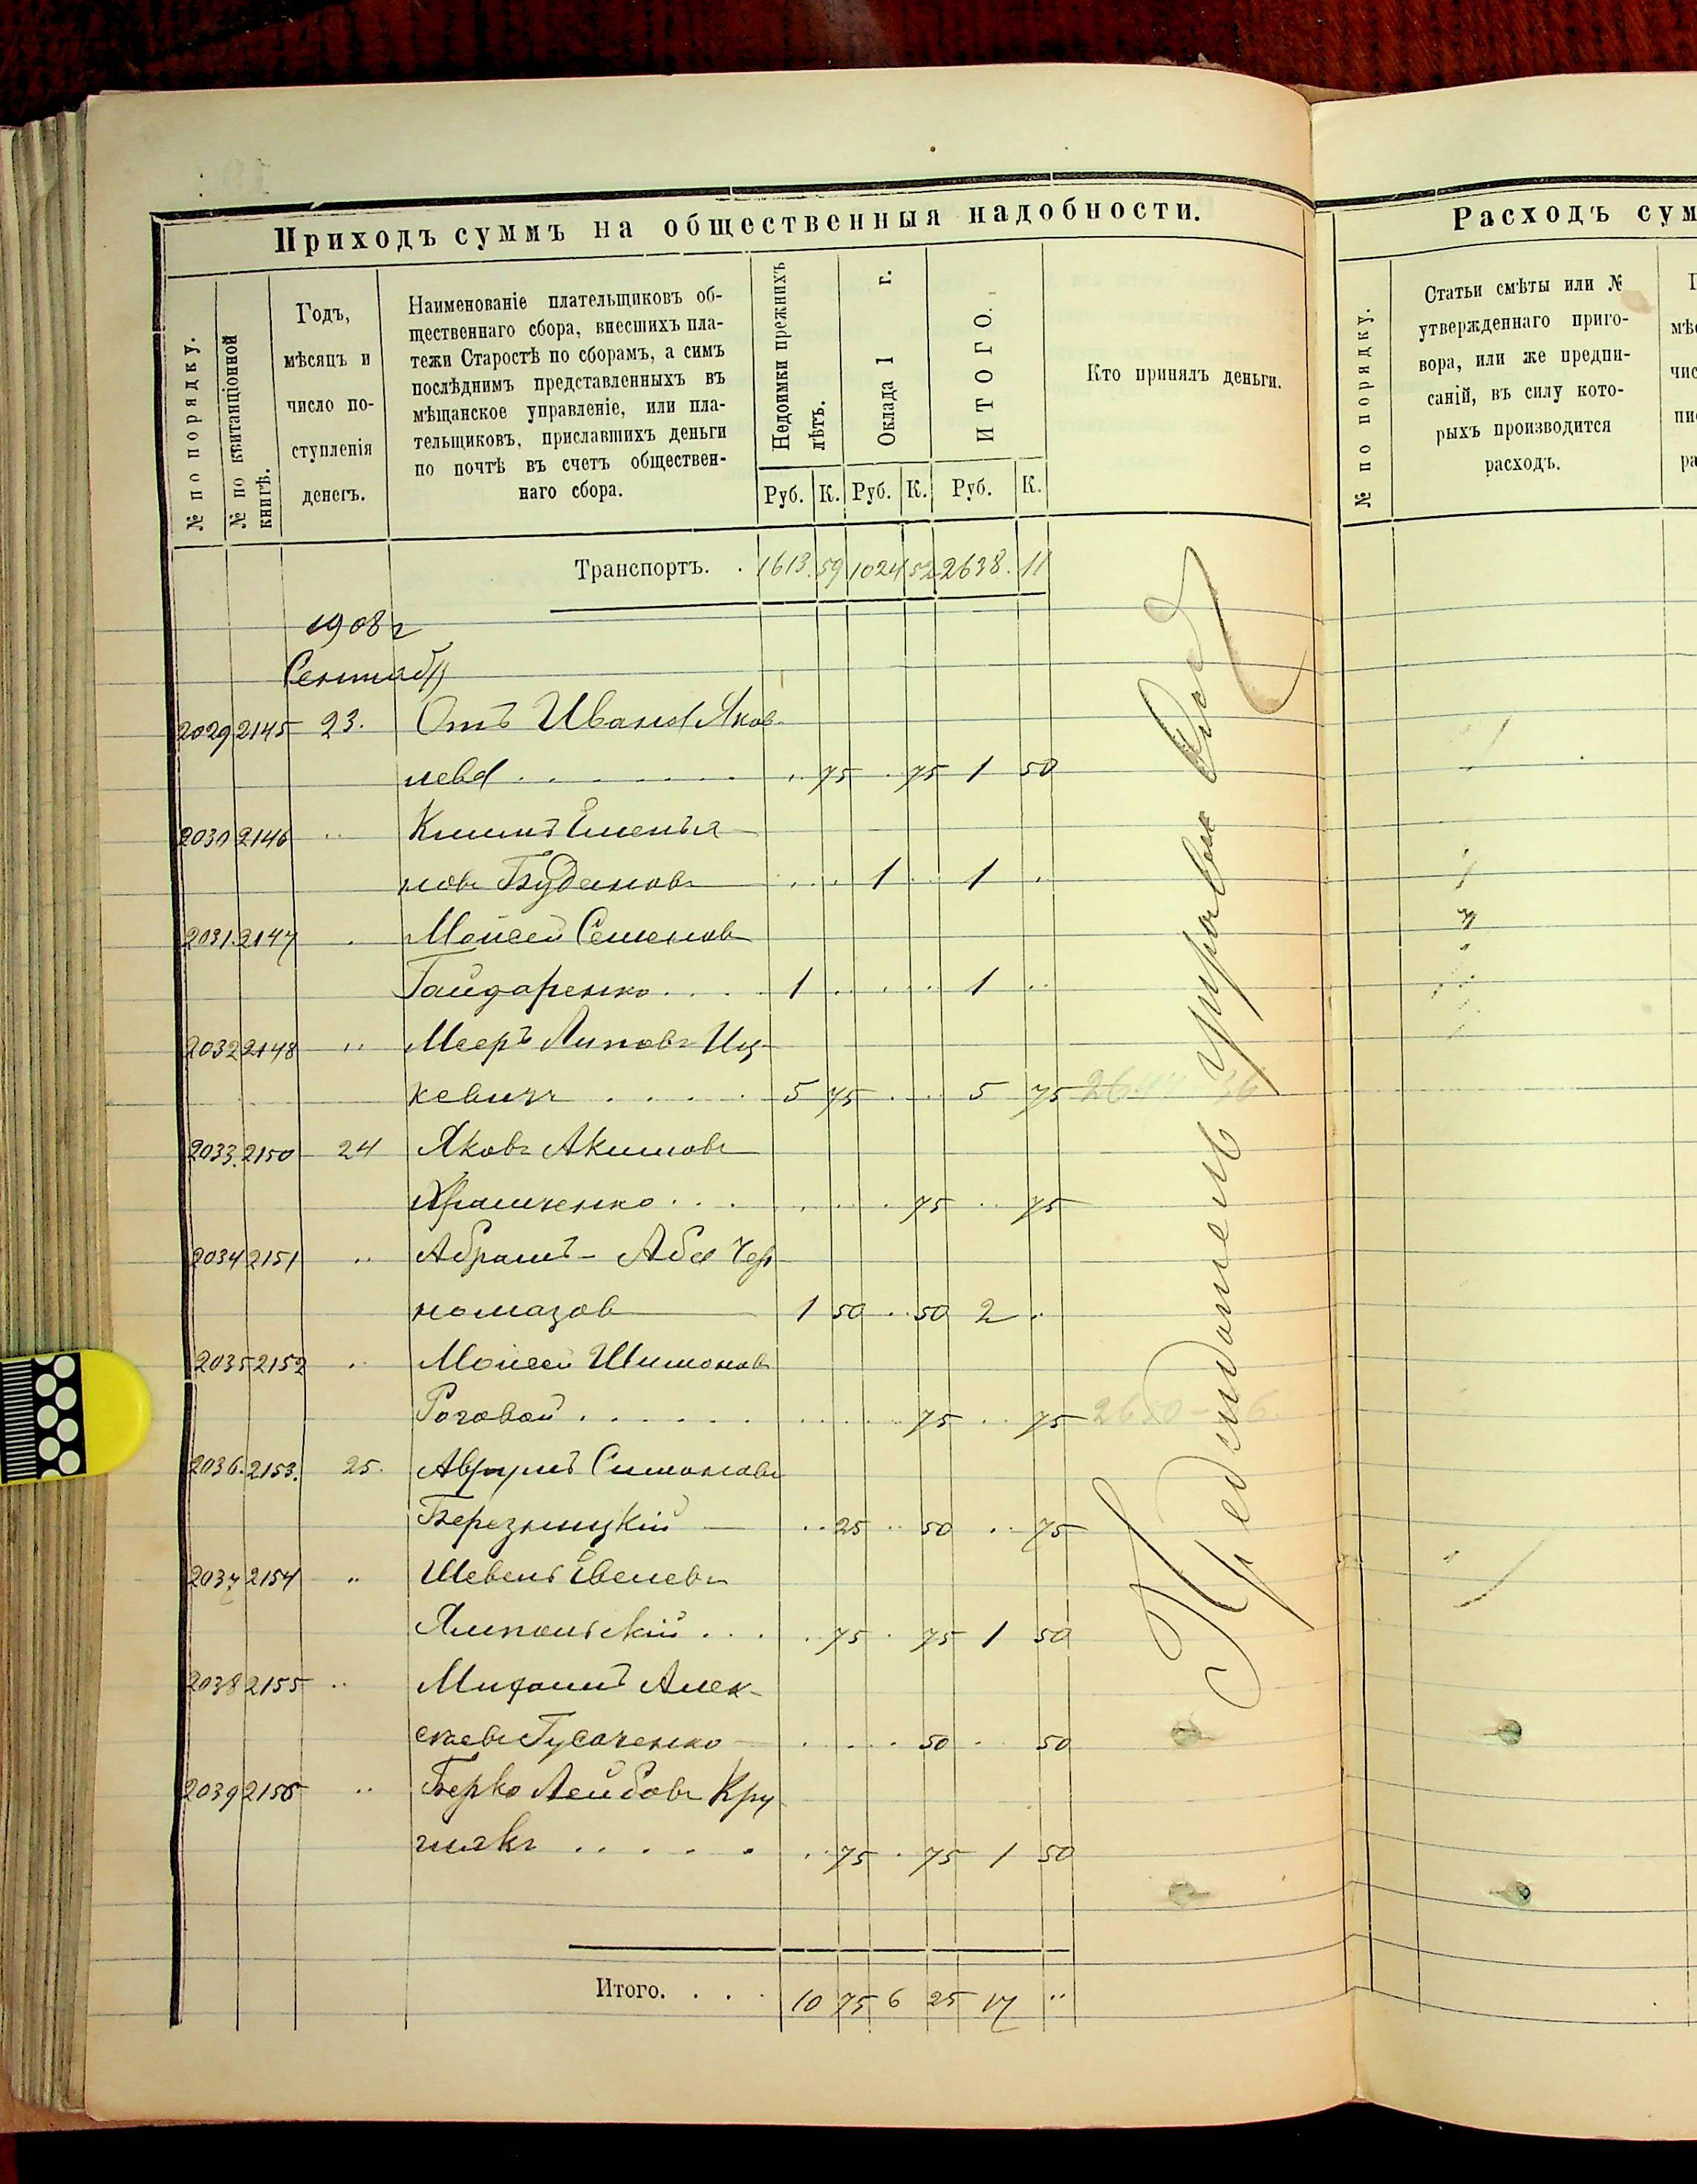 Приходъ суммъ на общественныя надобности.
№ по порядку.
№ по квитанціонной
книгѣ.
Годъ,
мѣсяцъ и
число по-
ступленія
денегъ.
Наименованіе плательщиковъ об-
щественнаго сбора, внесшихъ пла-
тежи Старостѣ по сборамъ, а симъ
послѣднимъ представленныхъ въ
мѣщанское управленіе, или пла-
тельщиковъ, приславшихъ деньги
по почтѣ въ счетъ обществен-
наго сбора.
Недоимки прежнихъ
лѣтъ.
Оклада 1 г.
ИТОГО.
Руб. К. Руб. К. Руб. К.
Кто принялъ деньги.
Транспортъ. . 1613. 59 1024 52 2638. 11
1908 г
Сентяб
2029 2145 23. Отъ Ивана Яков
лева . . . . . . . .. 75 . 75 1 50
2030 2146 .. Климъ Емелья
новъ Будановъ . . . 1 . 1 .
2031. 2147 . Моисей Семеновъ
Гайдаренко . . . . 1 . . . . 1 ..
2032 2148 .. Мееръ Липовъ Иц
кевичъ . . . . 5 75 . . . 5 75
2033. 2150 24 Яковъ Акимовъ
. . . . . . . 75 .. 75
2034 2151 .. Абрамъ-Аба Чер
номазов 1 50 .. 50 2 .
2035 2152 .. Моисей Шимоновъ
Роговой . . . . . . . . . . . 75 .. 75
2036. 2153. 25. Аврумъ Симоновъ
Березницкій .. 25 .. 50 .. 75
2037 2154 .. Шевель Евелевъ
Ямпольскій . . . . 75 . 75 1 50
2038 2155 .. Михаилъ Алек-
сѣевъ Гусаченко . . . . 50 . 50
2039 2156 .. Берко Лейбовъ Кру
глякъ . . . . . . 75 . 75 1 50
Итого. . . . 10 75 6 25 17 ..
Предсидатель управы
Расходъ сум
№ по порядку.
Статьи смѣты или №
утвержденнаго приго-
вора, или же предпи-
саній, въ силу кото-
рыхъ производится
расходъ.